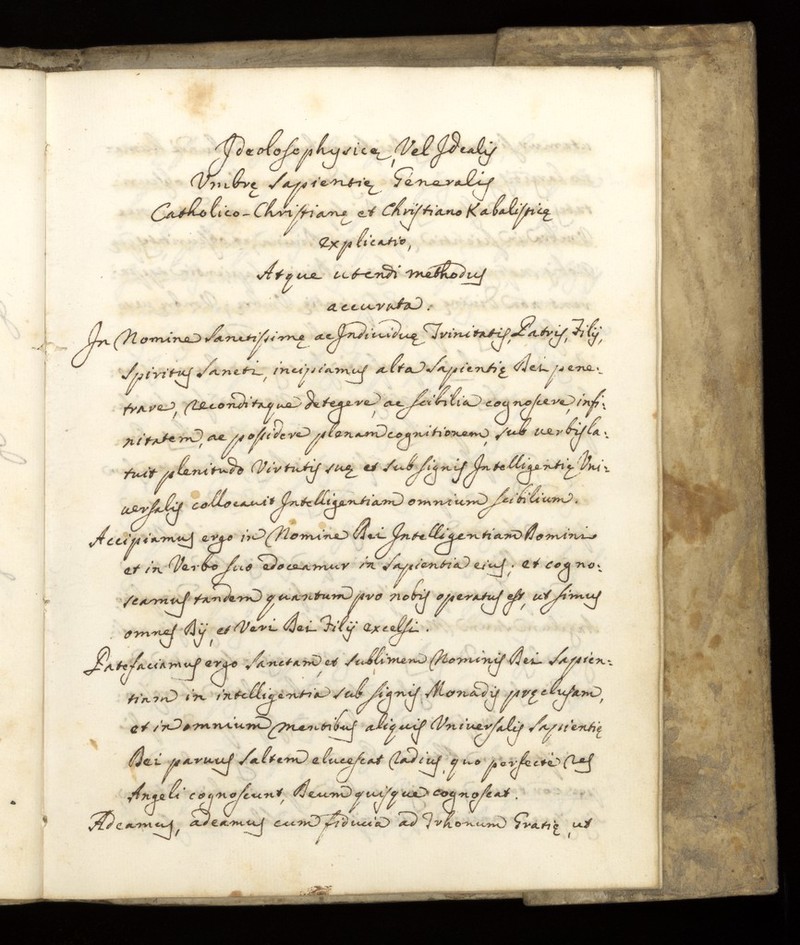 Ideolosophysicę, Vel Idealis
Vmbrę Sapientię Generalis
Catholico-Christianę et Christiano Kabalisticę
Explicatio,
Atque utendi methodus
accurata.
In Nomine Sanctissimę ac Individuę Trinitatis, Patris, Filij,
Spiritus Sancti, incipiamus alta Sapientię Dei pene:
trare, reconditaque detegere, ac scibilia cognoscere, infi:
nitatem, ac possidere plenam cognitionem, sub verbis la:
tuit plenitudo Virtutis suę et sub signis Intelligentię Vni:
versalis collocavit Intelligentiam omnium scibilium.
Accipiamus ergo in Nomine Dei Intelligentiam Domini
et in Verbo suo edoceamur in sapientia eius; et cogno:
scamus tandem quantum pro nobis operatus est, ut simus
omnes Dij, et Veri Dei Filij excelsi.
Patefaciamus ergo Sanctam, et sublimem Nominis Dei Sapien:
tiam in intelligentia sub signis Monadis pręclusam,
et in omnium mentibus aliquis Vniversalis Sapientię
Dei parvus saltem elucescat radius, quo perfectè res
Angeli cognoscunt, Deum quisque cognoscat.
Adeamus, adeamus cum fiducia ad Trhonum Gratię, ut